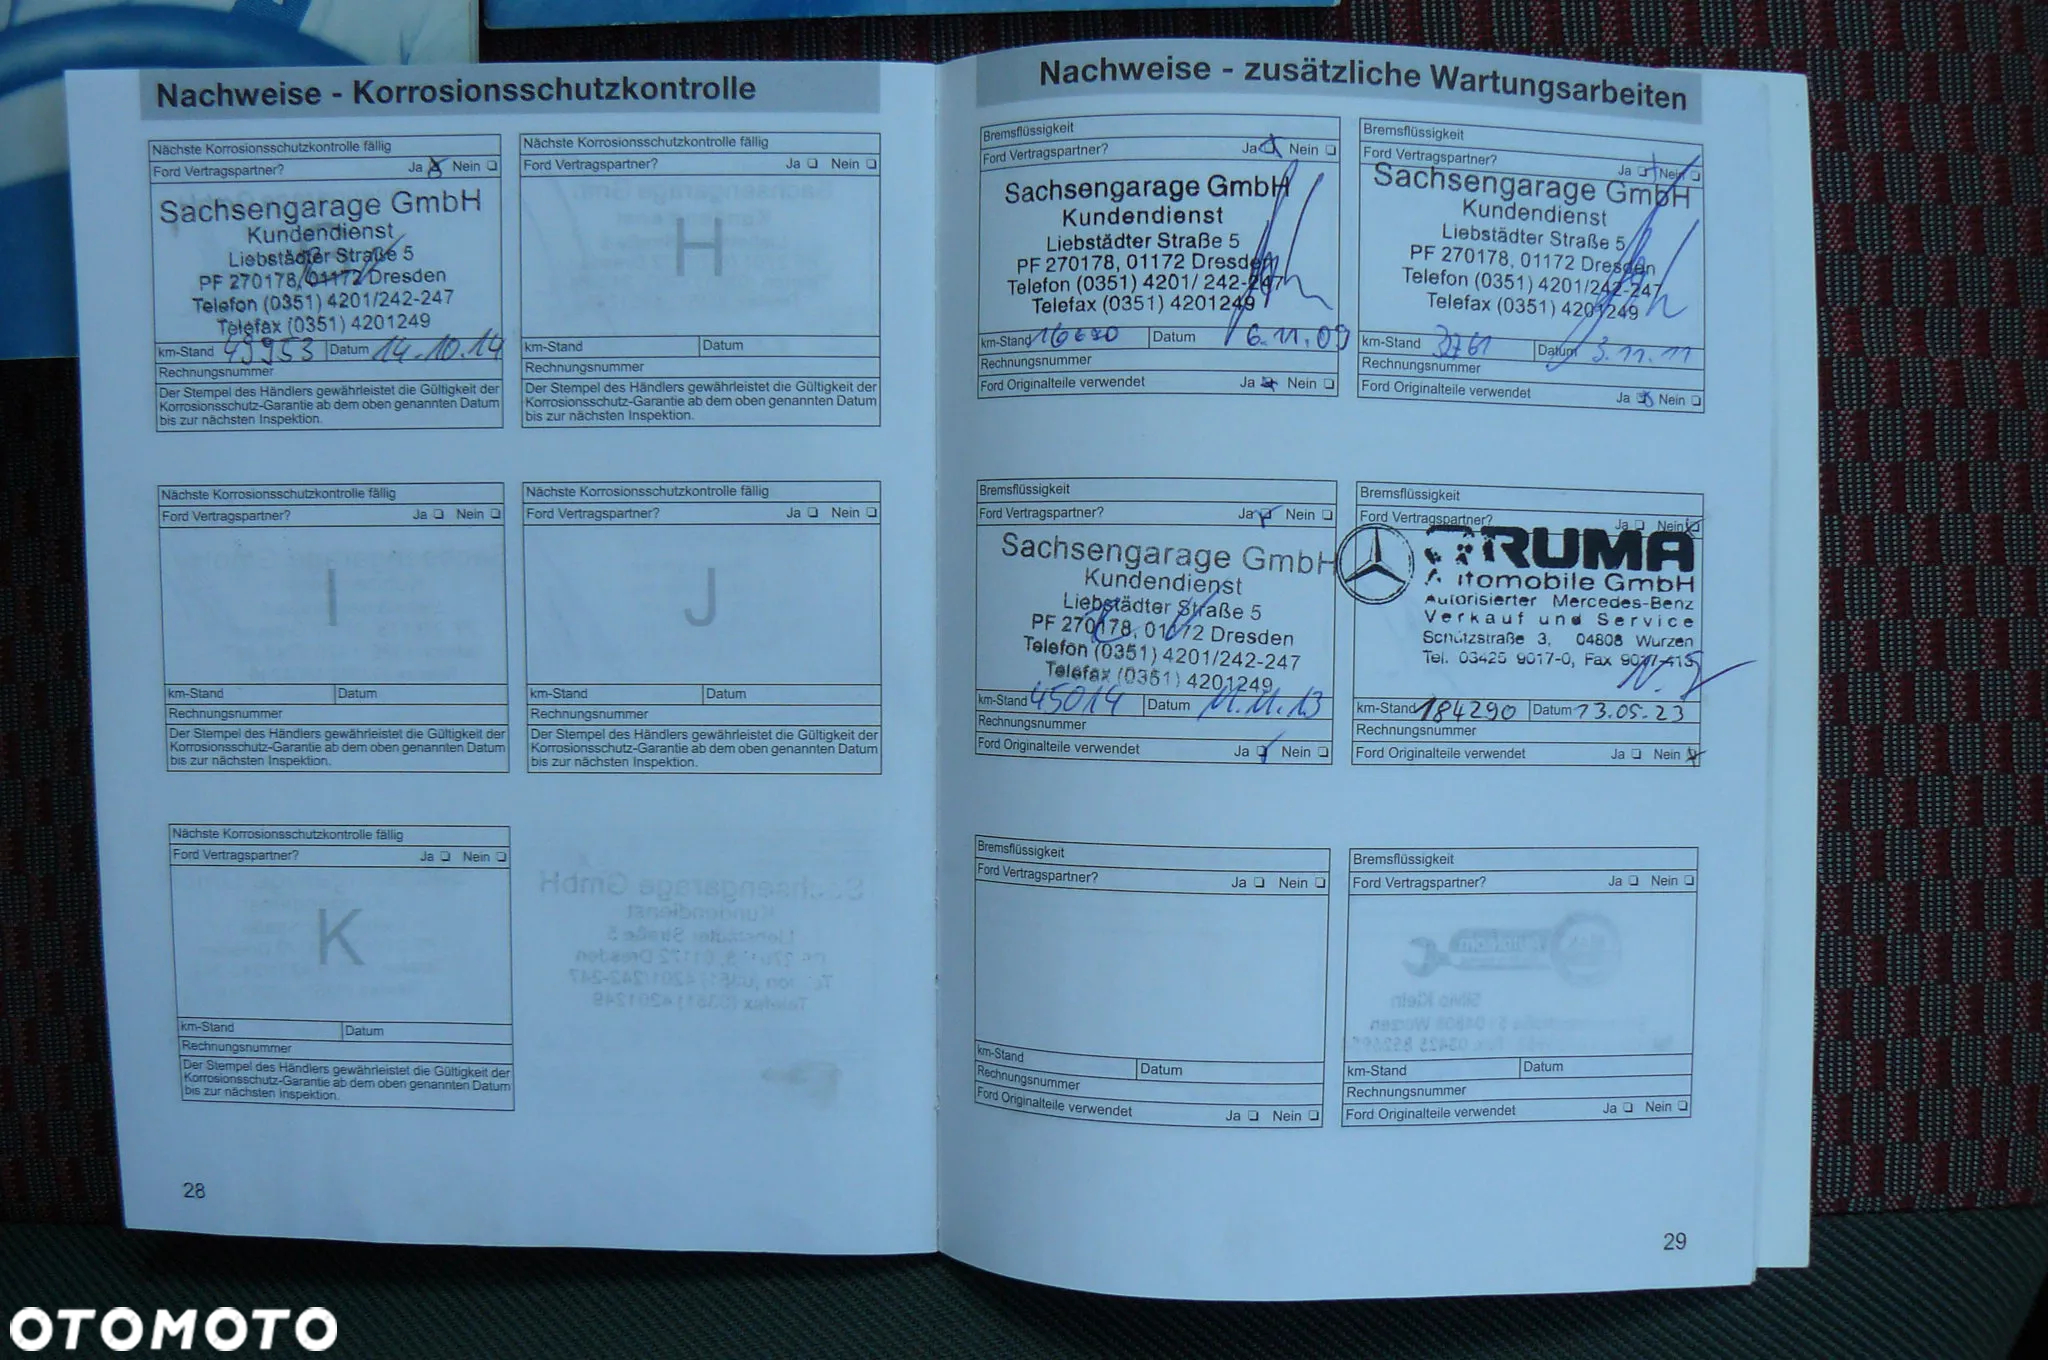 Nachweise - Korrosionsschutzkontrolle
Nächste Korrosionsschutzkontrolle fällig
Ford Vertragspartner? Ja Nein
Sachsengarage GmbH
Kundendienst
Liebstädter Straße 5
PF 270178, 01172 Dresden
Telefon (0351) 4201/242-247
Telefax (0351) 4201249
km-Stand 49953 Datum 14.10.14
Rechnungsnummer
Der Stempel des Händlers gewährleistet die Gültigkeit der
Korrosionsschutz-Garantie ab dem oben genannten Datum
bis zur nächsten Inspektion.
Nächste Korrosionsschutzkontrolle fällig
Ford Vertragspartner? Ja Nein
H
km-Stand Datum
Rechnungsnummer
Der Stempel des Händlers gewährleistet die Gültigkeit der
Korrosionsschutz-Garantie ab dem oben genannten Datum
bis zur nächsten Inspektion.
Nächste Korrosionsschutzkontrolle fällig
Ford Vertragspartner? Ja Nein
I
km-Stand Datum
Rechnungsnummer
Der Stempel des Händlers gewährleistet die Gültigkeit der
Korrosionsschutz-Garantie ab dem oben genannten Datum
bis zur nächsten Inspektion.
Nächste Korrosionsschutzkontrolle fällig
Ford Vertragspartner? Ja Nein
J
km-Stand Datum
Rechnungsnummer
Der Stempel des Händlers gewährleistet die Gültigkeit der
Korrosionsschutz-Garantie ab dem oben genannten Datum
bis zur nächsten Inspektion.
Nächste Korrosionsschutzkontrolle fällig
Ford Vertragspartner? Ja Nein
K
km-Stand Datum
Rechnungsnummer
Der Stempel des Händlers gewährleistet die Gültigkeit der
Korrosionsschutz-Garantie ab dem oben genannten Datum
bis zur nächsten Inspektion.
28
Nachweise - zusätzliche Wartungsarbeiten
Bremsflüssigkeit
Ford Vertragspartner? Ja Nein
Sachsengarage GmbH
Kundendienst
Liebstädter Straße 5
PF 270178, 01172 Dresden
Telefon (0351) 4201/ 242-247
Telefax (0351) 4201249
km-Stand Datum 6.11.09
Rechnungsnummer
Ford Originalteile verwendet Ja Nein
Bremsflüssigkeit
Ford Vertragspartner? Ja Nein
Sachsengarage GmbH
Kundendienst
Liebstädter Straße 5
PF 270178, 01172 Dresden
Telefon (0351) 4201/242-247
Telefax (0351) 4201249
km-Stand Datum 3.11.11
Rechnungsnummer
Ford Originalteile verwendet Ja Nein
Bremsflüssigkeit
Ford Vertragspartner? Ja Nein
Sachsengarage GmbH
Kundendienst
Liebstädter Straße 5
PF 270178, 01172 Dresden
Telefon (0351) 4201/242-247
Telefax (0351) 4201249
km-Stand 45014 Datum 11.11.13
Rechnungsnummer
Ford Originalteile verwendet Ja Nein
Bremsflüssigkeit
Ford Vertragspartner? Ja Nein
RUMA
GmbH
Autorisierter Mercedes-Benz
Verkauf und Service
Schützstraße 3, 04808 Wurzen
Tel. 03425 9017-0, Fax
km-Stand 184290 Datum 13.05.23
Rechnungsnummer
Ford Originalteile verwendet Ja Nein
Bremsflüssigkeit
Ford Vertragspartner? Ja Nein
km-Stand Datum
Rechnungsnummer
Ford Originalteile verwendet Ja Nein
Bremsflüssigkeit
Ford Vertragspartner? Ja Nein
km-Stand Datum
Rechnungsnummer
Ford Originalteile verwendet Ja Nein
29
OTOMOTO